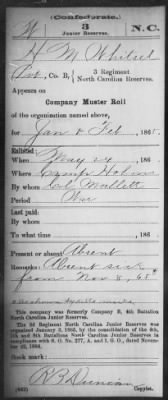 (Confederate.)
W 3 N.C.
Junior Reserves.
H M Whitsel
Pvt, Co. B, 3 Regiment
North Carolina Reserves.
Appears on
Company Muster Roll
of the organization named above,
for Jan & Feb, 1865.
Enlisted:
When May 24, 186
Where Camp Holmes
By whom Col. Mallett
Period War
Last paid:
By whom
To what time, 186
Present or absent Absent
Remarks: Absent sick
from Nov 8, 65
This company was formerly Company B, 4th Battalion
North Carolina Junior Reserves.
The 3d Regiment North Carolina Junior Reserves was
organized January 3, 1865, by the consolidation of the 4th,
and 8th Battalions North Carolina Junior Reserves in
compliance with S. O. No. 277, A. and I. G. O., dated November
1864.
Book mark:
R B Duncan
(642) Copyist.